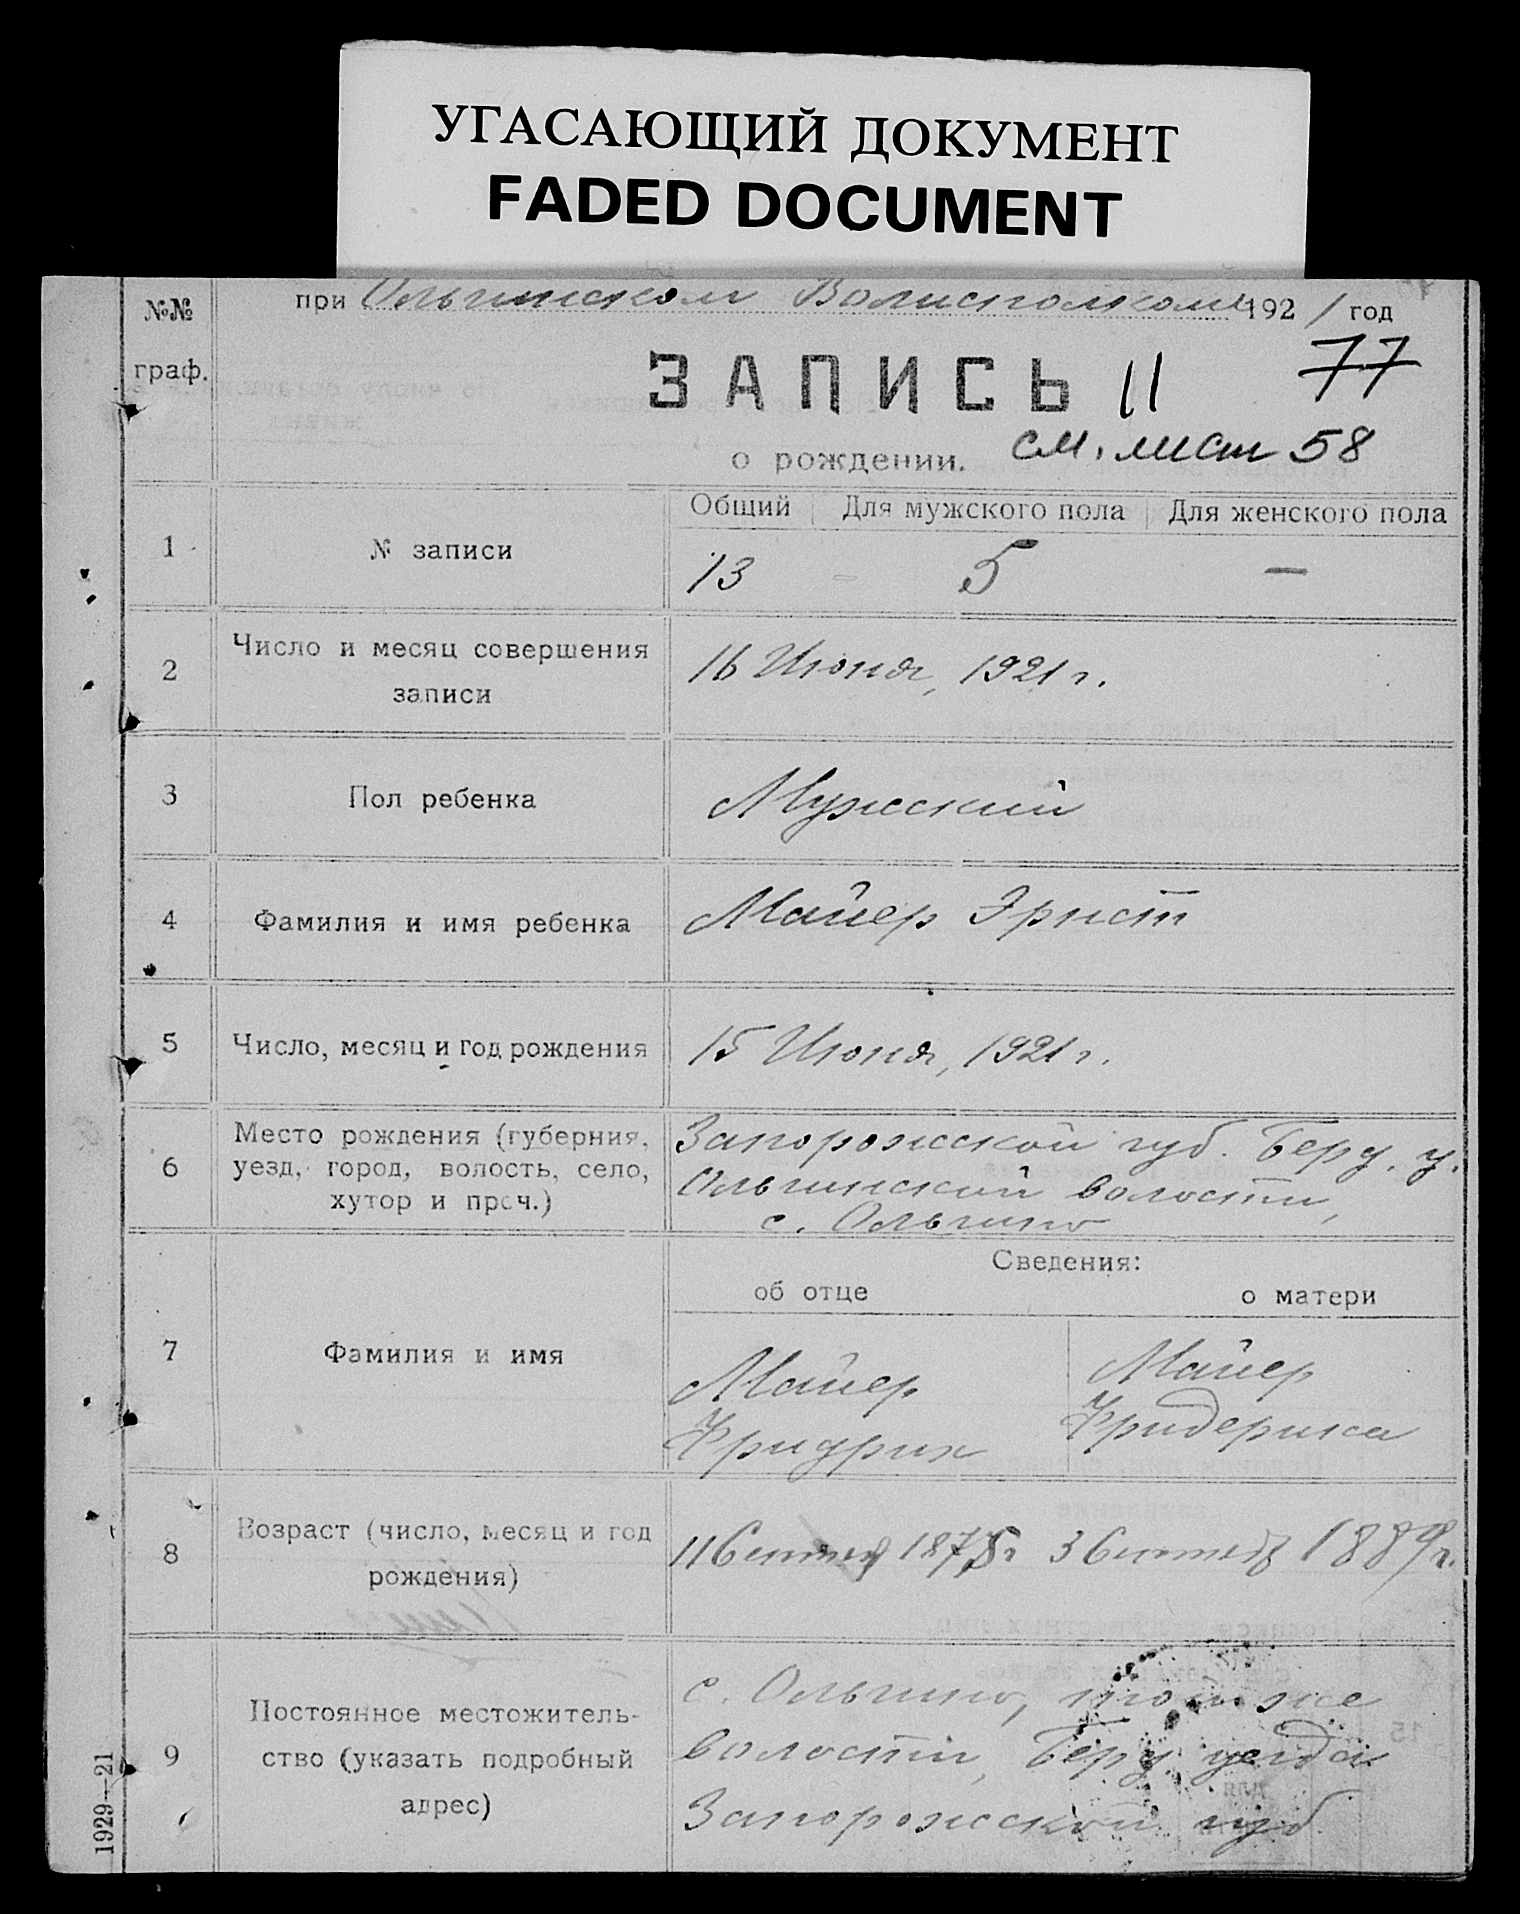 УГАСАЮЩИЙ ДОКУМЕНТ
FADED DOCUMENT
№№ граф.
при Ольгинском Волисполкоме 1921 год
ЗАПИСЬ 11
77
о рождении. см. лист 58
Общий Для мужского пола Для женского пола
1 № записи 13 5 —
2 Число и месяц совершения
записи
16 Июня, 1921 г.
3 Пол ребенка Мужский
4 Фамилия и имя ребенка Майер Эрнст
5 Число, месяц и год рождения 15 Июня, 1921 г.
6 Место рождения (губерния,
уезд, город, волость, село,
хутор и проч.)
Запорожской губ. Берд. у.
Ольгинской волости,
с. Ольгино
Сведения:
об отце о матери
7 Фамилия и имя
Майер
Фридрих
Майер
Фридерика
8 Возраст (число, месяц и год
рождения)
11 1875 г 3 1889 г.
9 Постоянное местожитель-
ство (указать подробный
адрес)
с. Ольгино, той же
волости, Берд. уезда
Запорожской губ
1929—21